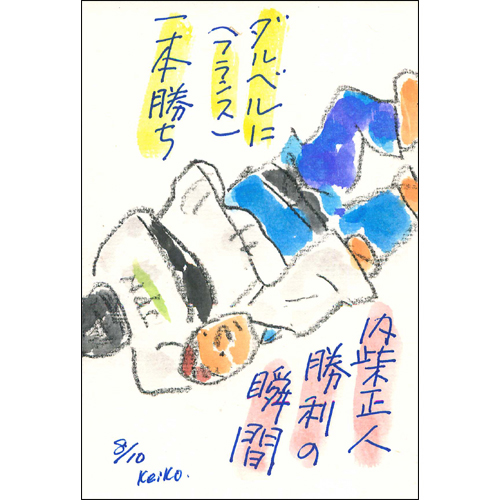 ダルベルに
(フランス)
一本勝ち
内柴正人
勝利の
瞬間
8/10
Keiko.